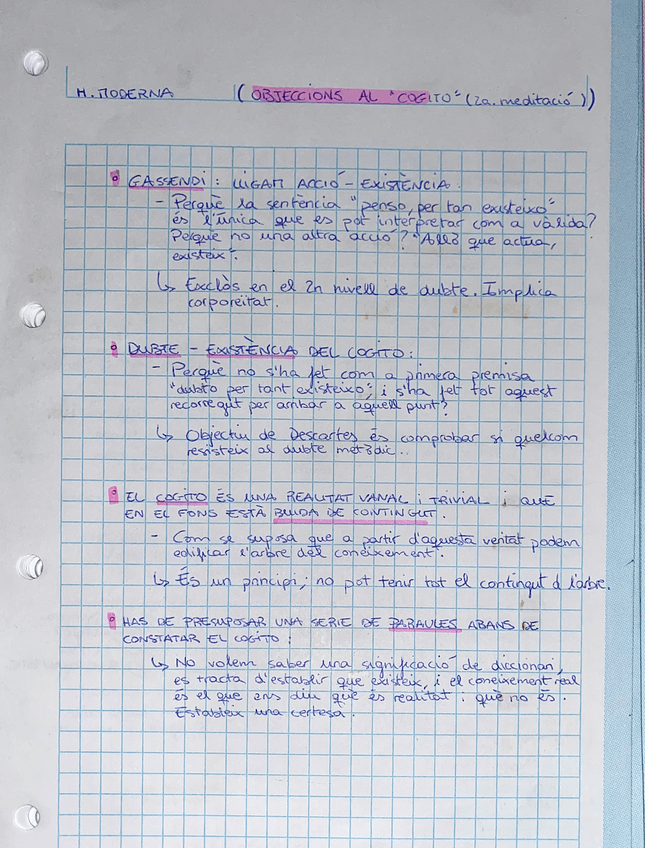 H. MODERNA (OBJECCIONS AL "COGITO" (2a. meditació))
GASSENDI: LLIGAM ACCIÓ - EXISTÈNCIA.
- Perquè la sentència "penso, per tan existeixo"
és l'única que es pot interpretar com a vàlida?
Perquè no una altra acció? "Allò que actua,
existeix".
↳ Exclòs en el 2n nivell de dubte. Implica
corporeitat.
DUBTE - EXISTÈNCIA DEL COGITO:
- Perquè no s'ha fet com a primera premisa
"dubto per tant existeixo", i s'ha fet tot aquest
recorregut per arribar a aquell punt?
↳ Objectiu de Descartes és comprobar si quelcom
resisteix al dubte metòdic..
EL COGITO ÉS UNA REALITAT VANAL i TRIVIAL i QUE
EN EL FONS ESTÀ BUIDA DE CONTINGUT.
- Com se suposa que a partir d'aquesta veritat podem
edificar l'arbre del coneixement?
↳ És un principi; no pot tenir tot el contingut d l'arbre.
HAS DE PRESUPOSAR UNA SERIE DE PARAULES ABANS DE
CONSTATAR EL COGITO:
↳ No volem saber una significació de diccionari,
es tracta d'establir que existeix, i el coneixement real
és el que ens diu que és realitat i què no és.
Estableix una certesa.